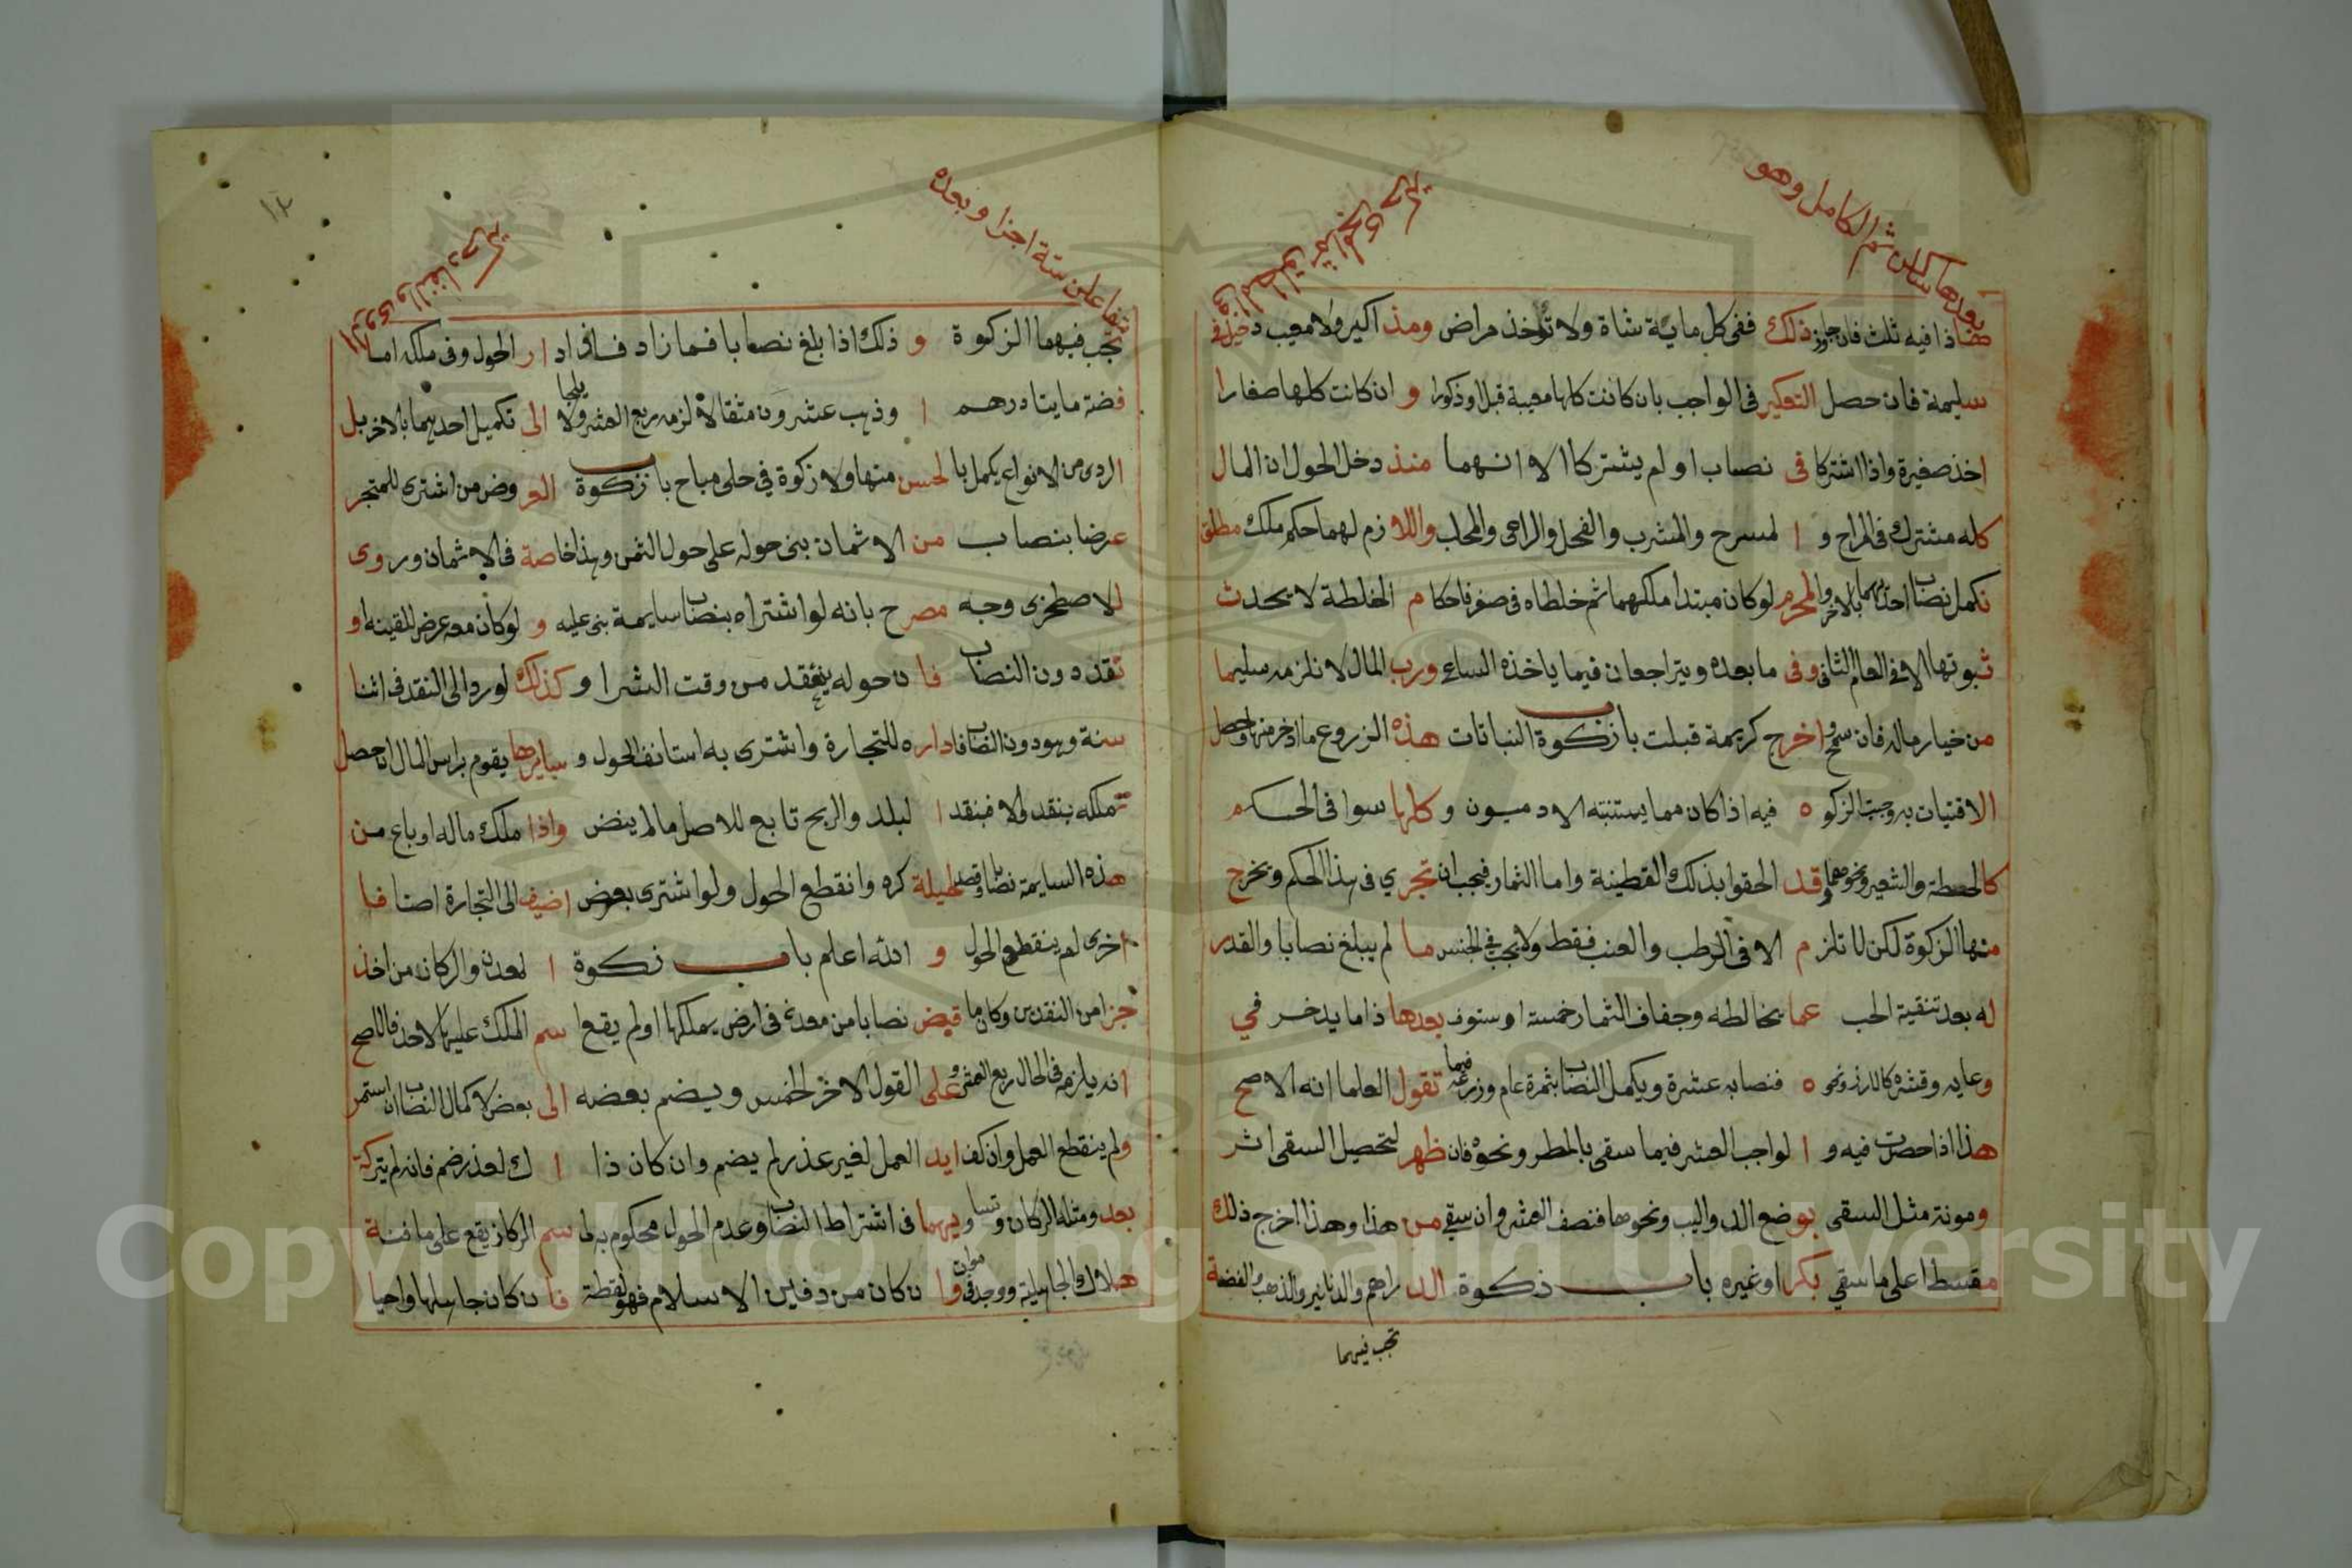 بعدها ساكن ثم الكامل وهو
فاذا فيه ثلث فان جاوز ذلك ففى كل ماية شاة ولا تؤخذ مراض ومذ اكير ولا معيب دخيل فى
سليمة فان حصل التعكير فى الواجب بان كانت كلها معيبة قبل او ذكورا و ان كانت كلها صغارا
اخذ صغيرة واذا اشتركا فى نصاب او لم يشتركا الا انهما منذ دخل الحول ان المال
كله مشترك فى المراح و ا لمسرح والمشرب والفحل والراعى والمحلب واللا زم لهما حكم ملك مطلق
تكمل نصاب احدهما بالاخر والمحرم لو كان مبتدا ملكهما ثم خلطاه فى صفر فاحكا م الخلطة لا يحدث
ثبوتها الا فى العام الثانى وفى ما بعده ويتراجعان فيما ياخذه الساعى ورب المال لا نلزمه سليما
من خيار ماله فان سمح واخرج كريمة قبلت باب زكوة النباتات هذه الزروع ما ادخر منها وحصل
الاقتيات به وجبت الزكو ة فيه اذا كان مما يستنبته الادميون و كلها سوا فى الحسكم
كالحنطة والشعير ونحوهما وقد الحقوا بذلك القطينة واما الثمار فيجب ان تجري فى هذا الحكم ونخرج
منها الزكوة لكن لا تلز م الا فى الرطب والعنب فقط ولا يجب فى الجنس ما لم يبلغ نصابا والقدر
له بعد تنقية الحب عما يخالطه وجفاف الثمار خمسة اوسق وبعدها ذا ما يدخر في
وعايه وقشره كالارز ونحو ه فنصابه عشرة ويكمل النصاب بثمرة عام وزرعه فيما تقول العلما انه الاصح
هذا اذا حصرت فيه و ا لواجب العشر فيما سقى بالمطر ونحوه فان ظهر لتحصيل السقى اثر
ومونة مثل السقى بوضع الدواليب ونحوها فنصف العشر وان سقى من هذا وهذا اخرج ذلك
مقسطا على ما سقي بكرا او غيره باب ذكوة الد راهم والدنانير والذهب والفضة
تجب فيهما
متفاعلن ستة اجزا وبعده
تجب فيهما الزكوة و ذلك اذا بلغ نصابا فما زاد فافى اد ار الحول وفى ملكه اما
فضة مايتا درهم ا وذهب عشرون مثقالا لزمه ربع العشر ولا يلجا الى تكميل احدهما بالاخر بل
الردى من الانواع يكمل بالحسن منها ولا زكوة في حلى مباح باب زكوة العروض من اشترى للمتجر
عرضا بنصاب من الاثمان بنى حوله على حول الثمن وهذا خاصة فى الاثمان وروى
للاصطخرى وجه مصرح بانه لو اشتراه بنصاب سايمة بنى عليه و لو كان معه عرض للقينه او
نقد دون النصاب فا ن حوله ينعقد من وقت الشرا و كذلك لو رد الى النقد فى اثنا
سنة وهو دون النصاب فاداره للتجارة واشترى به استانف الحول و سايرها يقوم براس المال ان حصل
تملكه بنقد والا فبنقد ا لبلد والربح تابع للاصل ما لم ينض واذا ملك ماله او باع من
هذه السايمة نصابا وقصد لحيلة كره وانقطع الحول ولو اشترى بعرض اضيف الى التجارة اصنافا
اخرى لم ينقطع الحول و الله اعلم باب زكوة ا لمعدن والركاز من اخذ
جزا من النقدين وكان ما قبض نصابا من معدن فى ارض يملكها او لم يقع ا سم الملك عليها لاحد فالاصح
انه يلزمه فى الحال ربع العشر وعلى القول الاخر الخمس ويضم بعضه الى بعض لاكمال النصاب ان استمر
ولم ينقطع العمل وان كف ايد العمل لغير عذر لم يضم وان كان ذا ا ك لعذر ضم فانه لم يتركه
بعد ومثله الركاز وتساويهما فى اشتراط النصاب وعدم الحول محكوم به لها سم الركاز يقع على ما فتة
هلاك الجاهلية ووجد فى موات وا ن كان من دفاين الاسلام فهو لقطة فا ن كان جاهليا واحيا